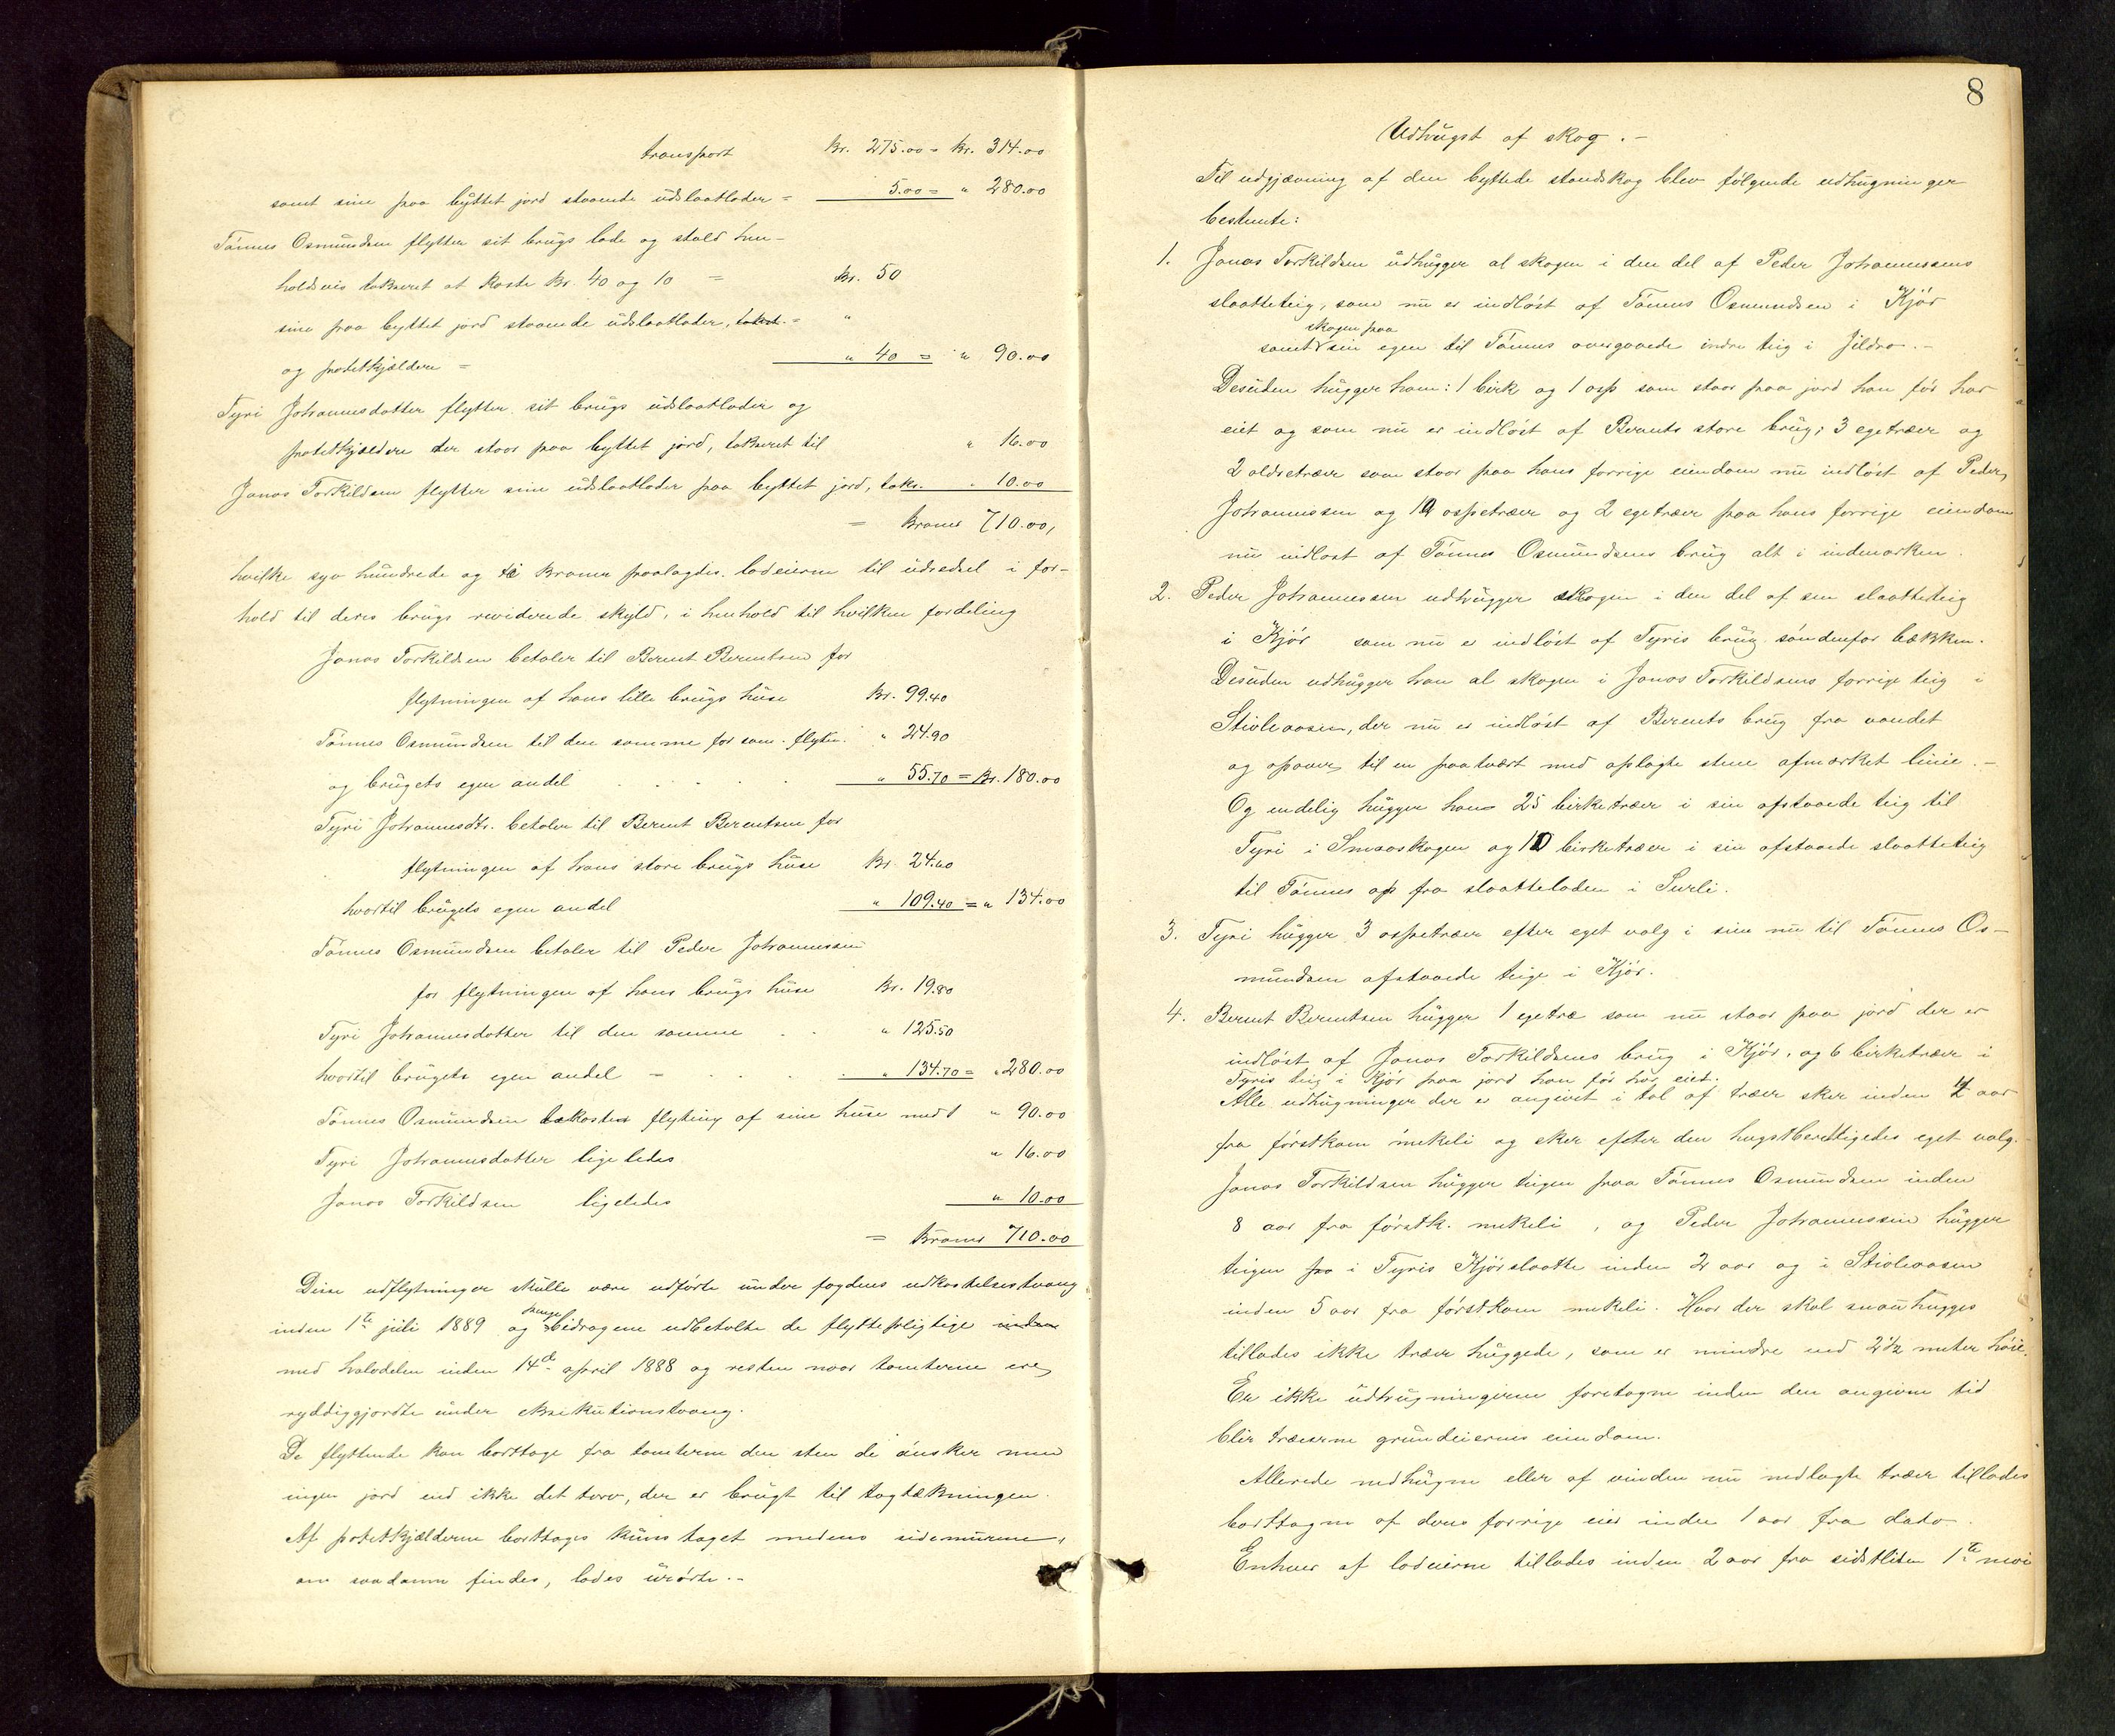 transport Kr. 275.00 = Kr. 314.00
samt sine paa byttet jord staaende udslaatlader = 5.00 = " 280.00
Tønnes Osmundsen flytter sit brugs lade og stald hen-
holdsvis takseret at koste Kr. 40 og 10 = Kr. 50
sine paa byttet jord staaende udslaatlader, takst. = "
og potetkjældere = " 40 = " 90.00
Tyri Johannesdatter flytter sit brugs udslaatlader og
potetkjældere der staar paa byttet jord, takseret til " 16.00
Jonas Torkildsen flytter sine udslaatlader paa byttet jord, taks. " 10.00
= Kroner 710.00,
hvilke syv hundrede og ti kroner paalagdes lodeierne til udredsel i for-
hold til deres brugs reviderede skyld, i henhold til hvilken fordeling
Jonas Torkildsen betaler til Berent Berentsen for
flytningen af hans lille brugs huse Kr. 99.40
Tønnes Osmundsen til den samme for sam. flytn. " 24.90
og brugets egen andel . . . . " 55.70 = Kr. 180.00
Tyri Johannesdtr. betaler til Berent Berentsen for
flytningen af hans store brugs huse Kr. 24.60
hvortil brugets egen andel " 109.40 = " 134.00
Tønnes Osmundsen betaler til Peder Johannessen
for flytningen af hans brugs huse Kr. 19.80
Tyri Johannesdatter til den samme . . " 125.50
hvortil brugets egen andel = . . . . " 134.70 = " 280.00
Tønnes Osmundsen bekoster flytning af sine huse med " 90.00
Tyri Johannesdatter ligeledes " 16.00
Jonas Torkildsen ligeledes " 10.00
= Kroner 710.00
Disse udflytninger skulle være udførte under fogdens udkastelsestvang
inden 1te juli 1889 og penge bidragene udbetalte de flyttepligtige inden
med halvdelen inden 14de april 1888 og resten naar tomterne ere
ryddiggjordte under eksekutionstvang.
De flyttende kan borttage fra tomterne den sten de ønsker men
ingen jord end ikke det torv, der er brugt til tagtækningen.
Af potetkjælderne borttages kuns taget medens sidemurene,
om saadanne findes, lades urørte. -
8
Udhugst af skog. -
Til udgjævning af den byttede standskog blev følgende udhugninger
bestemte:
1. Jonas Torkildsen udhugger al skogen i den del af Peder Johannessens
slaatteteig, som nu er indløst af Tønnes Osmundsen i Kjør
samt skogen paa sin egen til Tønnes overgaaede indre teig i Jildra. -
Desuden hugger han: 1 birk og 1 asp som staar paa jord han før har
eiet og som nu er indløst af Berents store brug; 3 egetræer og
2 oldretræer som staar paa hans forrige eiendom nu indløst af Peder
Johannessen og 10 aspetræer og 2 egetræer paa hans forrige eiendom
nu indløst af Tønnes Osmundsens brug alt i indmarken.
2. Peder Johannessen udhugger skogen i den del af sin slaatteteig
i Kjør som nu er indløst af Tyris brug søndenfor bækken.
Desuden udhugger han al skogen i Jonas Torkildsens forrige teig i
Stioleaasen, der nu er indløst af Berents brug fra vandet
og opover til en paatvært med oplagte stene afmærket linie. -
Og endelig hugger han 25 birketræer i sin afstaaede teig til
Tyri i Smaaskogen og 10 birketræer i sin afstaaede slaatteteig
til Tønnes op fra slaatteladen i Surli.
3. Tyri hugger 3 aspetræer efter eget valg i sine nu til Tønnes Os-
mundsen afstaaede teige i Kjør.
4. Berent Berentsen hugger 1 egetræ som nu staar paa jord der er
indløst af Jonas Torkildsens brug i Kjør, og 6 birketræer i
Tyris teig i Kjør paa jord han før har eiet.
Alle udhugninger der er angivet i tal af træer sker inden 4 aar
fra førstkom. mikeli og sker efter den hugstberettigedes eget valg.
Jonas Torkildsen hugger teigen fraa Tønnes Osmundsen inden
8 aar fra førstk. mikeli, og Peder Johannessen hugger
teigen fra i Tyris Kjørslaatte inden 2 aar og i Stioleaasen
inden 5 aar fra førstkom mikeli. Hvor der skal snauhugges
tillades ikke træer huggede, som er mindre end 2 1/2 meter høie.
Er ikke udhugningerne foretagne inden den angivne tid
blir træerne grundeiernes eiendom.
Allerede nedhugne eller af vinden nu nedlagte træer tillades
borttagne af deres forrige eier inden 1 aar fra dato.
Enhver af lodeierne tillades inden 2 aar fra sidstleden 1te mai